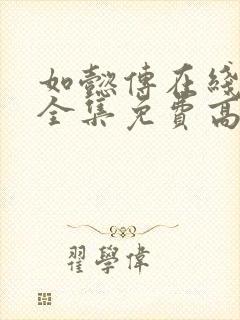 如懿傳在綫
全集免費高
翟學偉